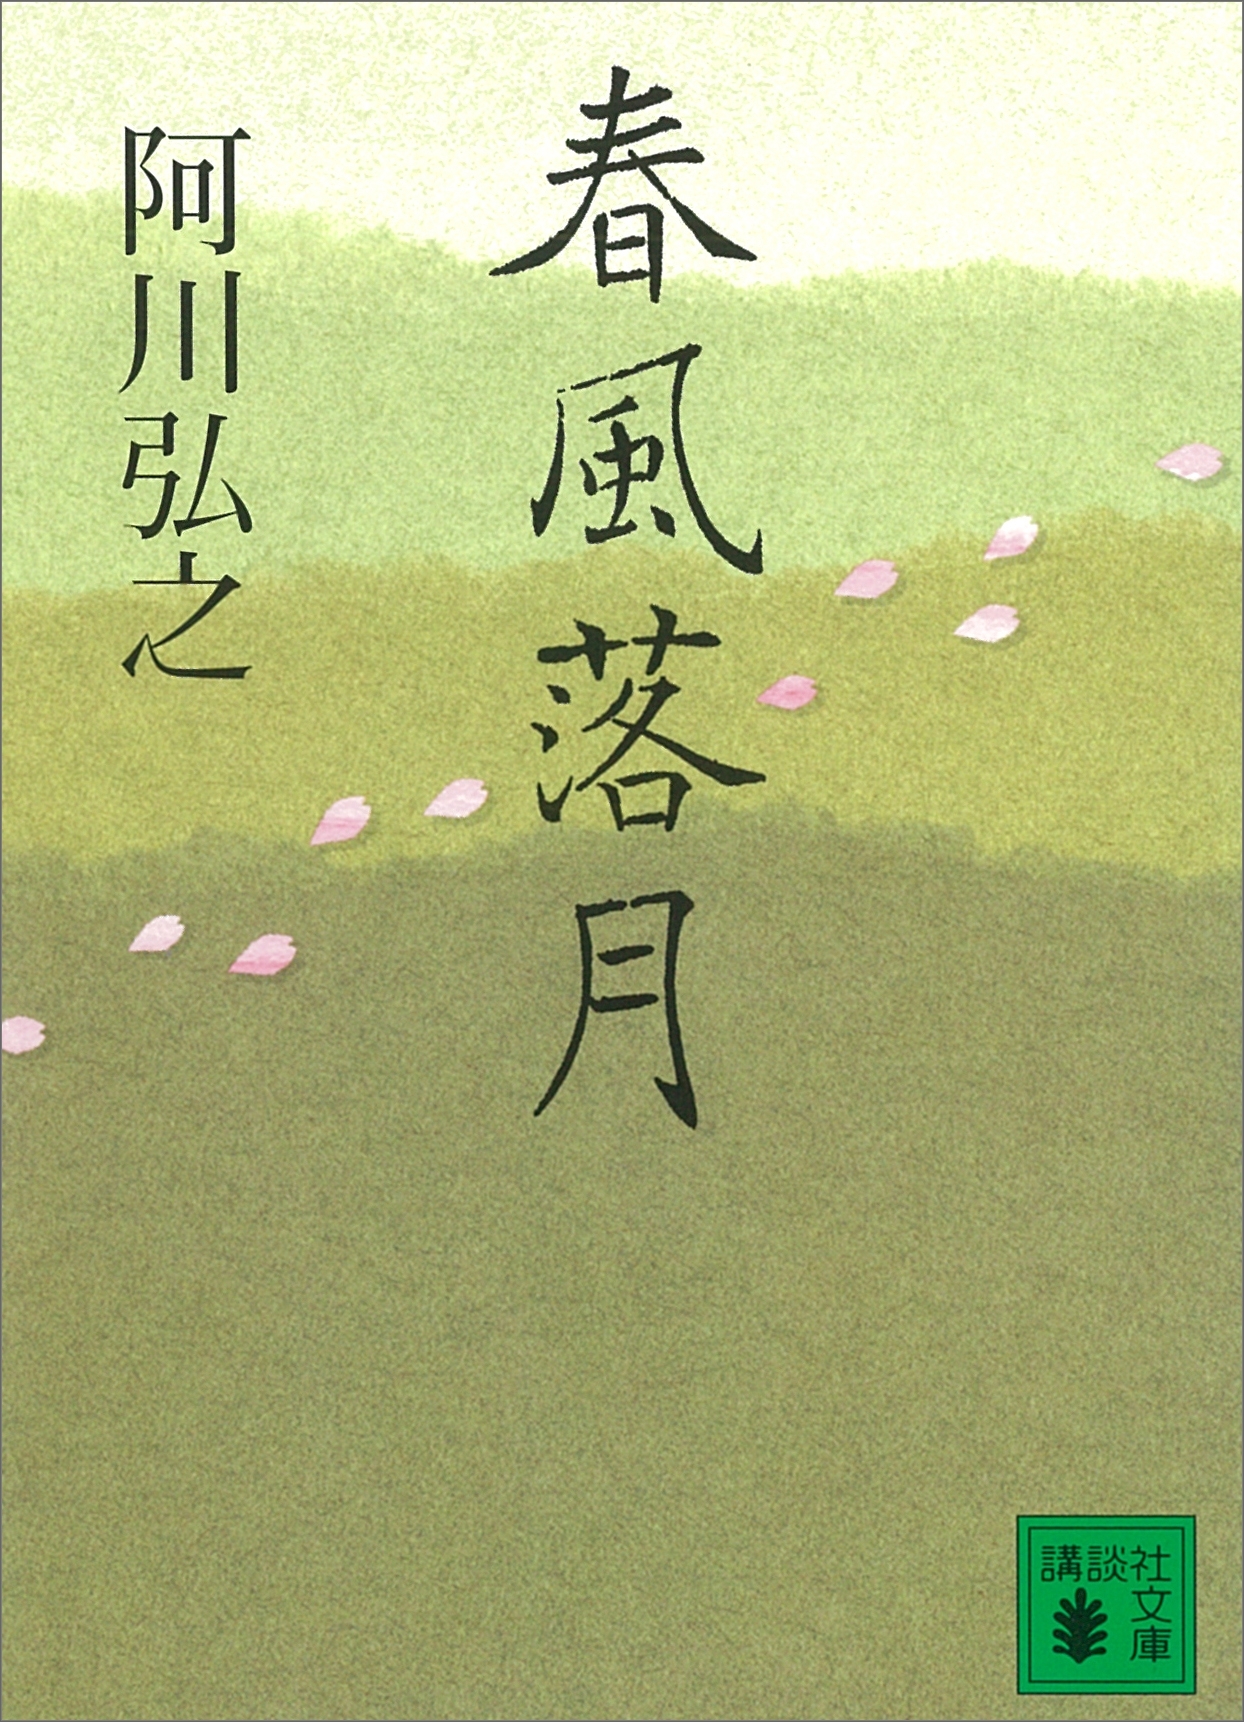 春風落月
阿川弘之
講談社
文庫